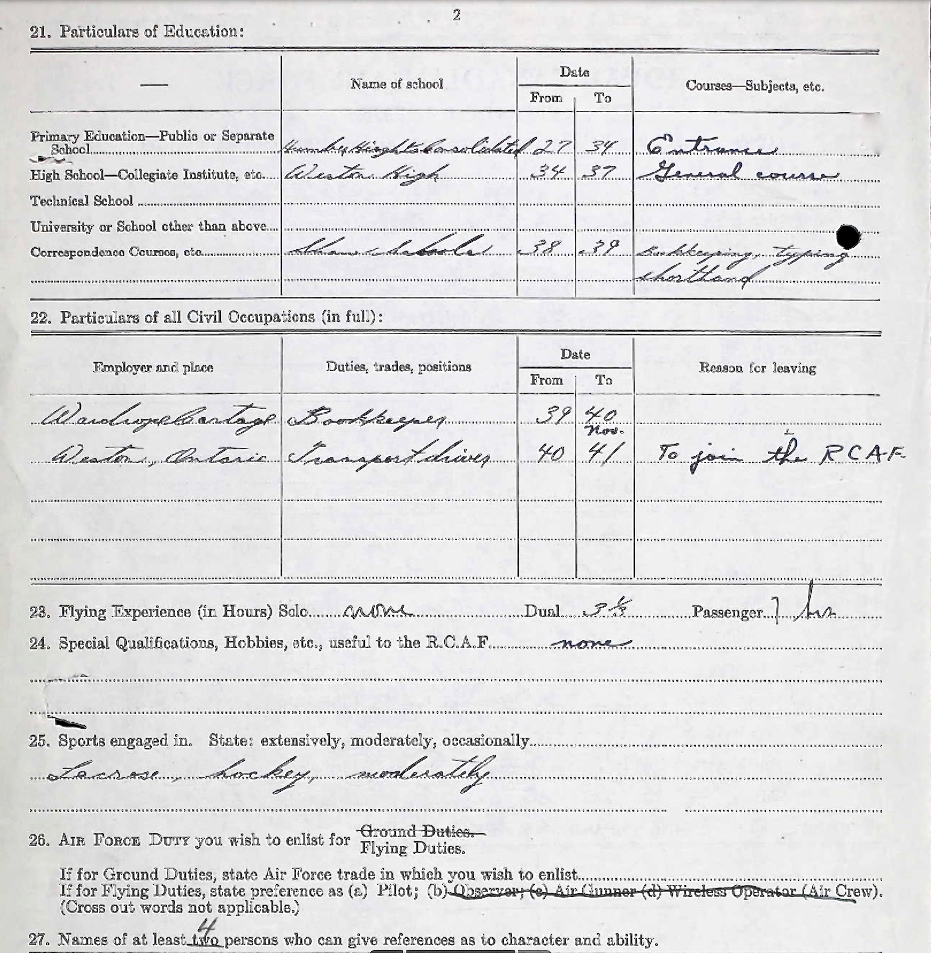 2
21. Particulars of Education:
— Name of school Date Courses—Subjects, etc.
From To
Primary Education—Public or Separate
School Humber Heights Consolidated 27 34 Entrance
High School—Collegiate Institute, etc. Weston High 34 37 General course
Technical School
University or School other than above
Correspondence Courses, etc. Shaw Schools 38 39 Bookkeeping, typing
shorthand
22. Particulars of all Civil Occupations (in full):
Employer and place Duties, trades, positions Date Reason for leaving
From To
Wardrope Cartage Bookkeeper 39 40
Nov.
Weston, Ontario Transport driver 40 41 To join the R.C.A.F.
23. Flying Experience (in Hours) Solo none Dual 3 Passenger hr
24. Special Qualifications, Hobbies, etc., useful to the R.C.A.F. none
25. Sports engaged in. State: extensively, moderately, occasionally
Lacrose, hockey, moderately
26. AIR FORCE DUTY you wish to enlist for Ground Duties.
Flying Duties.
If for Ground Duties, state Air Force trade in which you wish to enlist
If for Flying Duties, state preference as (a) Pilot; (b) Observer; (c) Air Gunner (d) Wireless Operator (Air Crew).
(Cross out words not applicable.)
4
27. Names of at least two persons who can give references as to character and ability.